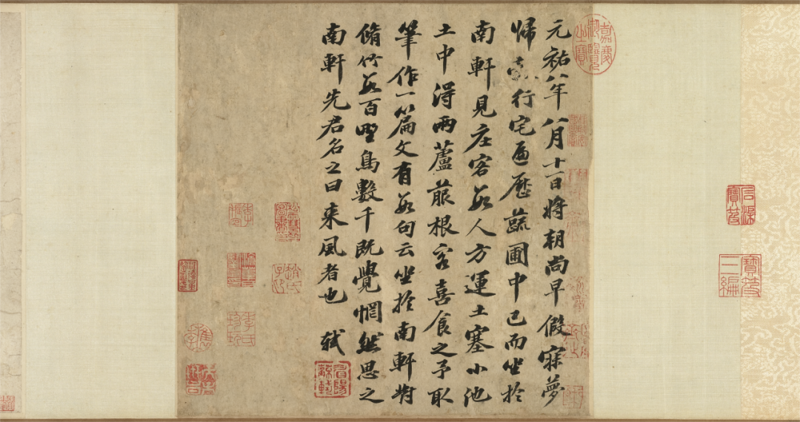 嘉慶御覽之寶
寶笈三編
元祐八年八月十一日將朝尚早假寐夢
歸縠行宅遍歷蔬圃中已而坐於
南軒見庄客數人方運土塞小池
土中得兩蘆菔根客喜食之予取
筆作一篇文有數句云坐於南軒對
脩竹數百野鳥數千既覺惘然思之
南軒先君名之曰來風者也 軾